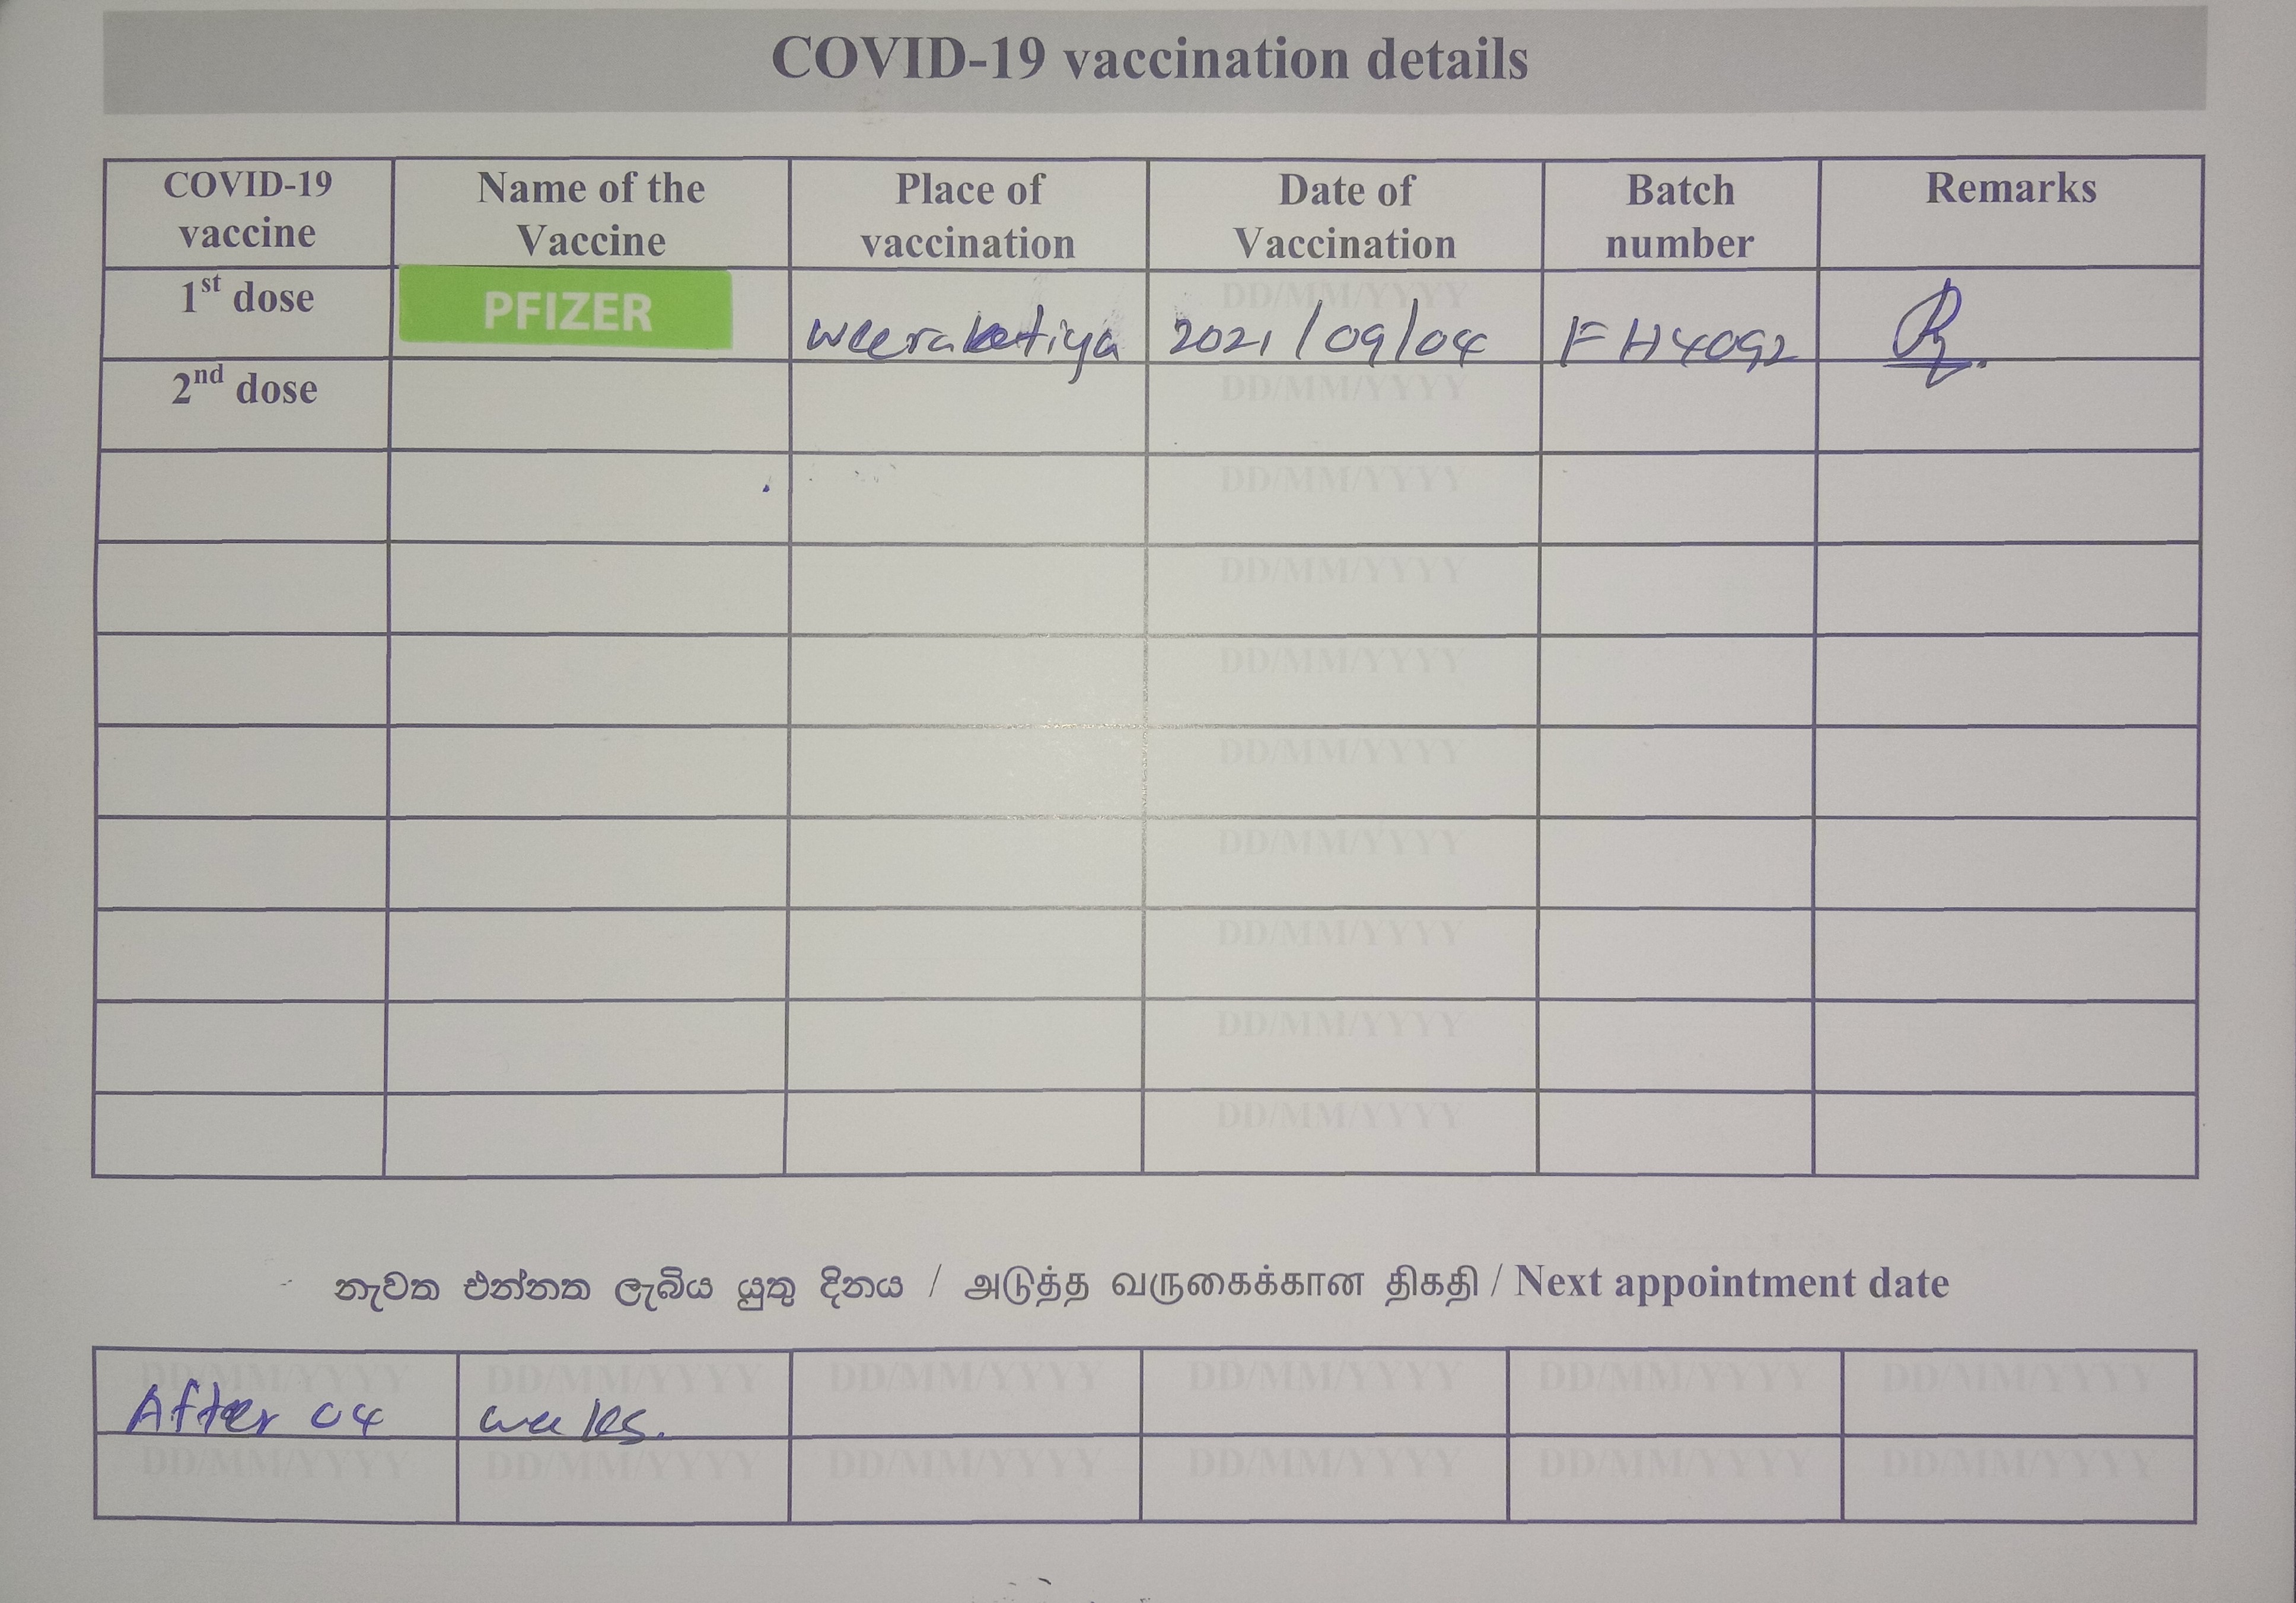 COVID-19 vaccination details
COVID-19 vaccine Name of the Vaccine Place of vaccination Date of Vaccination Batch number Remarks
1st dose PFIZER Weeraketiya DD/MM/YYYY 2021/09/04 FH4092
2nd dose DD/MM/YYYY
DD/MM/YYYY
DD/MM/YYYY
DD/MM/YYYY
DD/MM/YYYY
DD/MM/YYYY
DD/MM/YYYY
DD/MM/YYYY
DD/MM/YYYY
නැවත එන්නත ලැබිය යුතු දිනය / அடுத்த வருகைக்கான திகதி / Next appointment date
DD/MM/YYYY DD/MM/YYYY DD/MM/YYYY DD/MM/YYYY DD/MM/YYYY DD/MM/YYYY
After 04 weeks.
DD/MM/YYYY DD/MM/YYYY DD/MM/YYYY DD/MM/YYYY DD/MM/YYYY DD/MM/YYYY